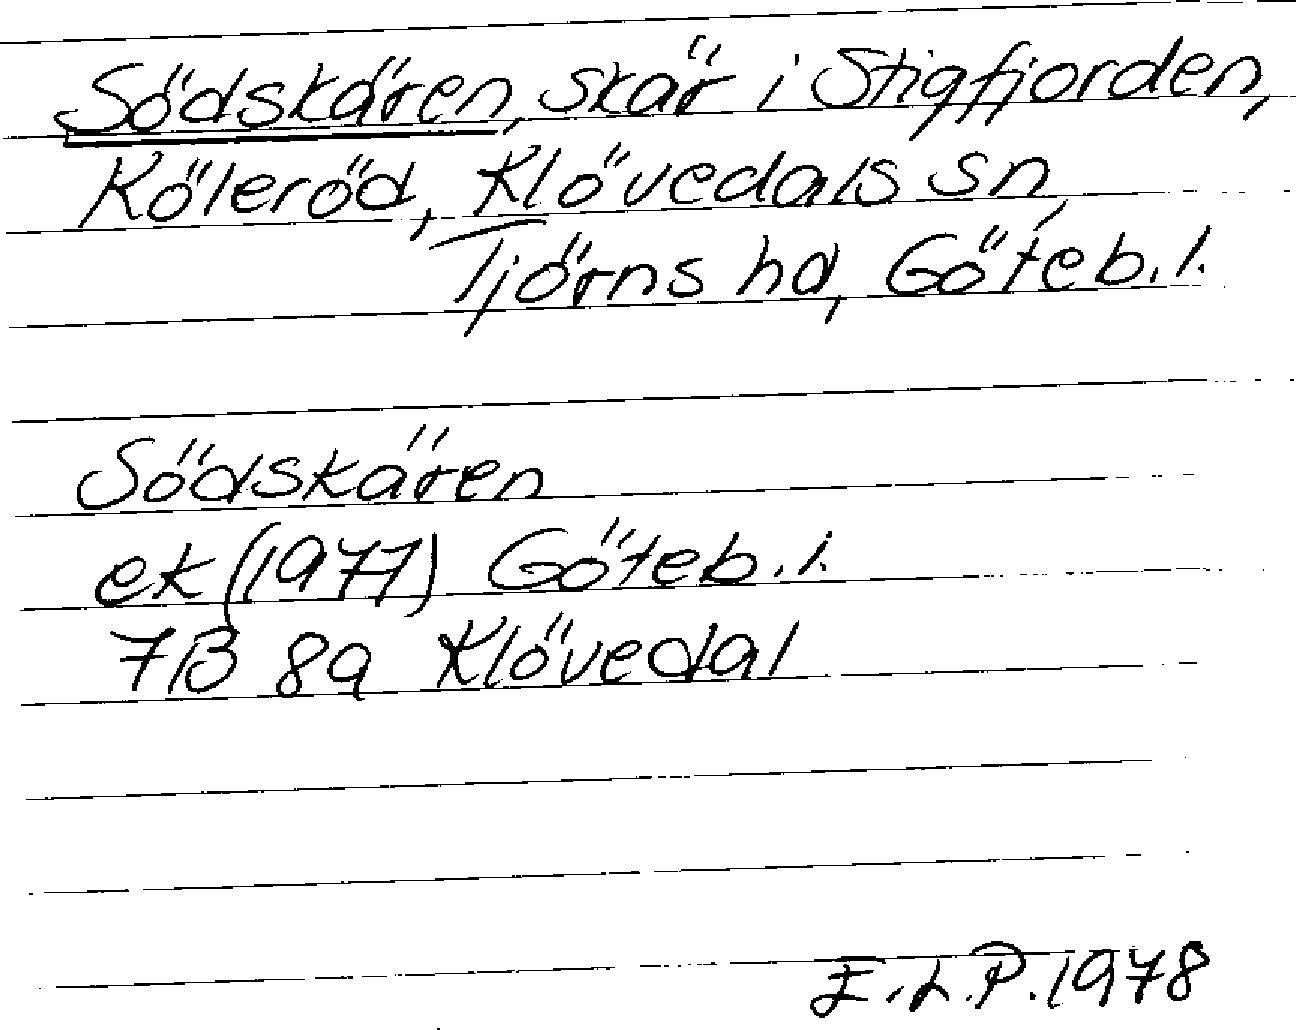 Södskären, skär i Stigfjorden,
Köleröd, Klövedals sn,
Tjörns hd, Göteb. l.
Södskären
ek (1977) Göteb. l.
7B 8a Klövedal
E.L.P. 1978